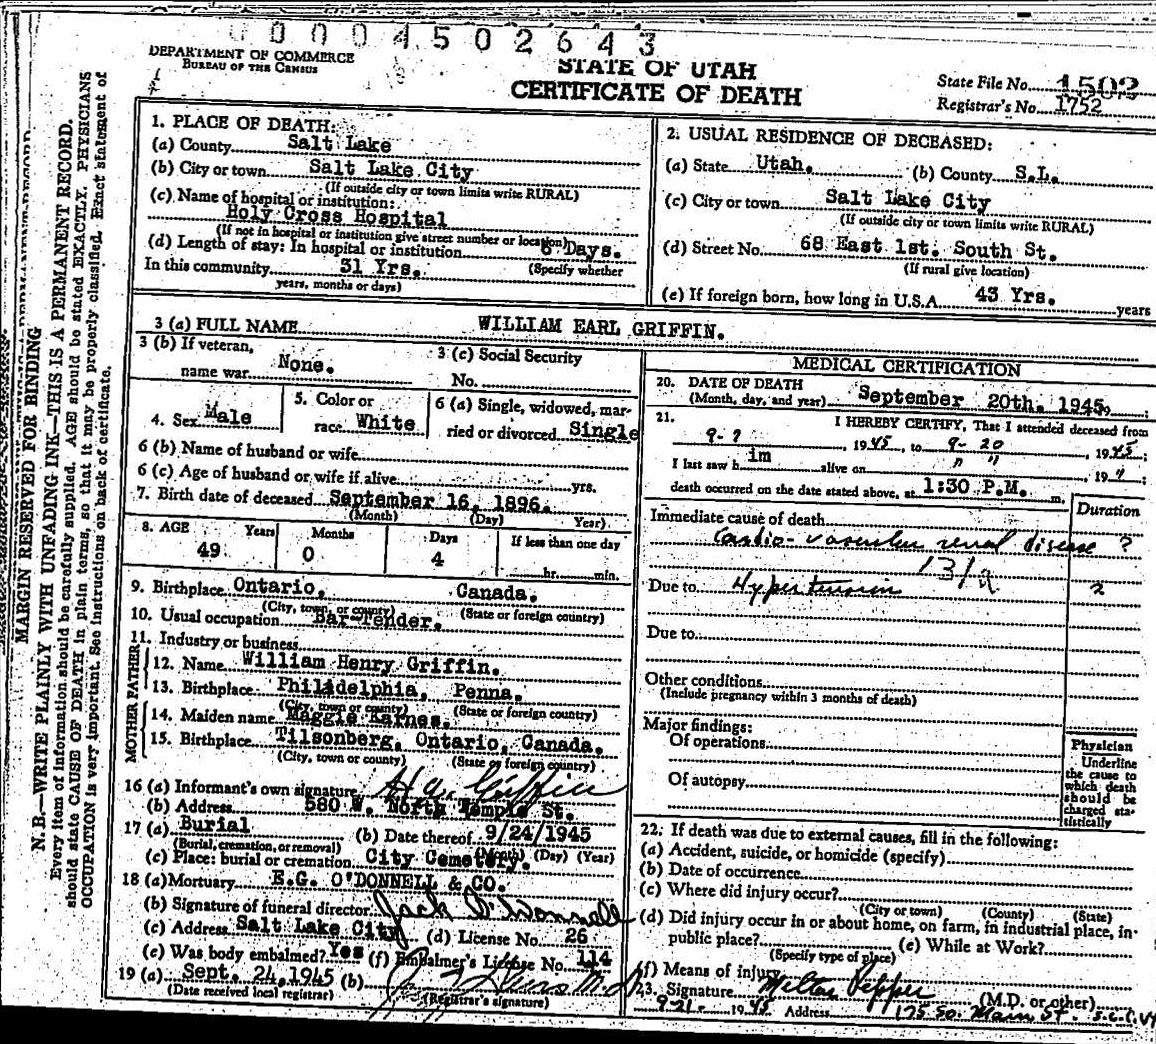 00004502643
DEPARTMENT OF COMMERCE
BUREAU OF THE CENSUS
STATE OF UTAH
CERTIFICATE OF DEATH
State File No. 1502
Registrar's No. 1752
MARGIN RESERVED FOR BINDING
N. B.—WRITE PLAINLY WITH UNFADING INK—THIS IS A PERMANENT RECORD.
Every item of information should be carefully supplied. AGE should be stated EXACTLY. PHYSICIANS
should state CAUSE OF DEATH in plain terms, so that it may be properly classified. Exact statement of
OCCUPATION is very important. See instructions on back of certificate.
1. PLACE OF DEATH:
(a) County Salt Lake
(b) City or town Salt Lake City
(If outside city or town limits write RURAL)
(c) Name of hospital or institution:
Holy Cross Hospital
(If not in hospital or institution give street number or location)
(d) Length of stay: In hospital or institution 6 Days.
In this community 31 Yrs. (Specify whether
years, months or days)
2. USUAL RESIDENCE OF DECEASED:
(a) State Utah. (b) County S.L.
(c) City or town Salt Lake City
(If outside city or town limits write RURAL)
(d) Street No. 68 East 1st. South St.
(If rural give location)
(e) If foreign born, how long in U.S.A. 43 Yrs. years
3 (a) FULL NAME WILLIAM EARL GRIFFIN.
3 (b) If veteran,
name war None.
3 (c) Social Security
No.
4. Sex Male
5. Color or
race White
6 (a) Single, widowed, mar-
ried or divorced Single
6 (b) Name of husband or wife
6 (c) Age of husband or wife if alive yrs.
7. Birth date of deceased September 16, 1896.
(Month) (Day) Year)
8. AGE Years Months Days If less than one day
49 0 4 hr. min.
9. Birthplace Ontario, Canada.
(City, town, or county) (State or foreign country)
10. Usual occupation Bar-Tender.
11. Industry or business
FATHER
12. Name William Henry Griffin.
13. Birthplace Philidelphia, Penna.
(City, town or county) (State or foreign country)
MOTHER
14. Maiden name Maggie Karnes.
15. Birthplace Tilsonberg, Ontario, Canada.
(City, town or county) (State or foreign country)
16 (a) Informant's own signature H a. Griffin
(b) Address 580 W. North Temple St.
17 (a) Burial (b) Date thereof 9/24/1945
(Burial, cremation, or removal) (Month) (Day) (Year)
(c) Place: burial or cremation City Cemetery.
18 (a) Mortuary E.G. O'DONNELL & CO.
(b) Signature of funeral director Jack O'Donnell
(c) Address Salt Lake City (d) License No. 26
(e) Was body embalmed? Yes (f) Embalmer's License No. 114
19 (a) Sept. 24, 1945 (b) M.D.
(Date received local registrar) (Registrar's signature)
MEDICAL CERTIFICATION
20. DATE OF DEATH
(Month, day, and year) September 20th. 1945.
21. I HEREBY CERTIFY, That I attended deceased from
9-7, 1945, to 9-20, 1945;
I last saw h im alive on " ", 19 "
death occurred on the date stated above, at 1:30 P.M. m.
Duration
Immediate cause of death
Cardio-vascular renal disease ?
131a
Due to Hypertension 2
Due to
Other conditions
(Include pregnancy within 3 months of death)
Major findings:
Of operations
Of autopsy
Physician
Underline
the cause to
which death
should be
charged sta-
tistically
22. If death was due to external causes, fill in the following:
(a) Accident, suicide, or homicide (specify)
(b) Date of occurrence
(c) Where did injury occur?
(City or town) (County) (State)
(d) Did injury occur in or about home, on farm, in industrial place, in
public place? (e) While at Work?
(Specify type of place)
(f) Means of injury
23. Signature Milton Pepper (M.D. or other)
9-21- 1945 Address 175 So. Main St. S.L.C. Ut